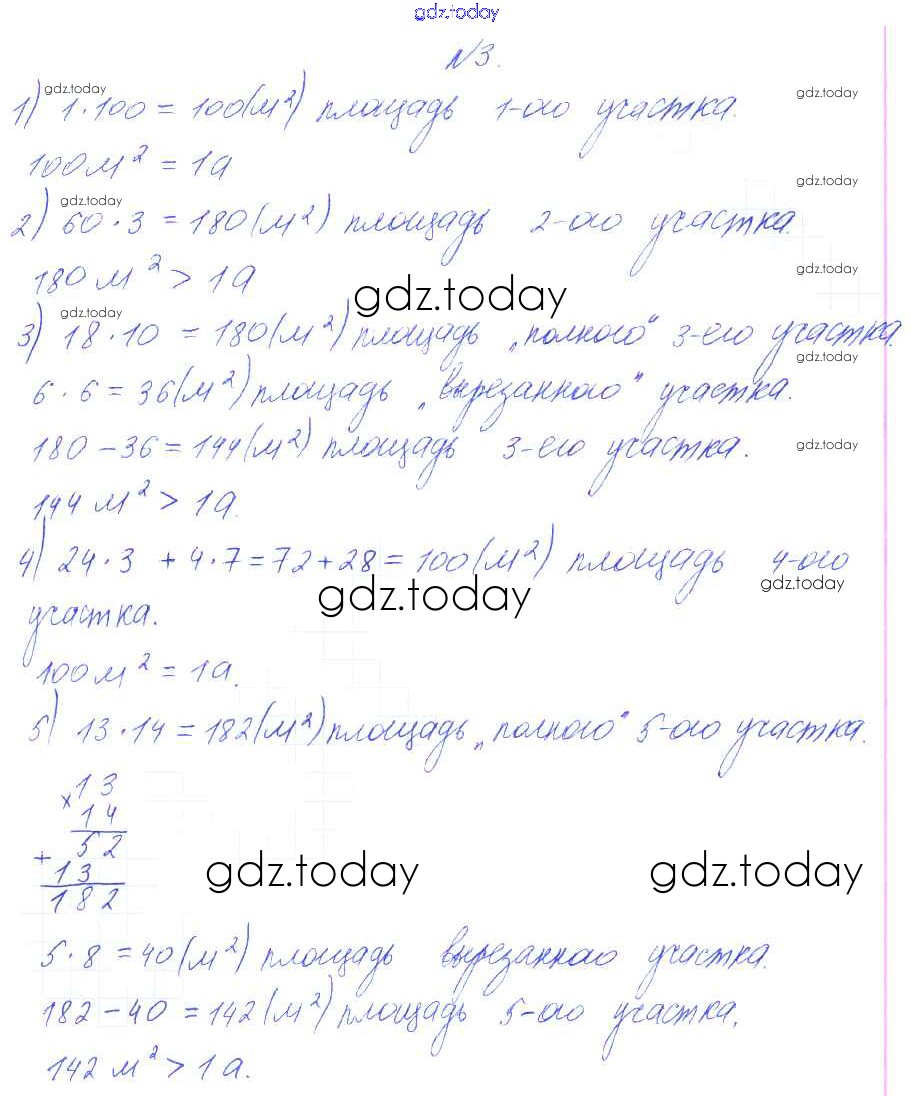 gdz.today
№3.
gdz.today
1) 1·100 = 100(м²) площадь 1-ого участка.
gdz.today
100м² = 1а
gdz.today
gdz.today
2) 60·3 = 180(м²) площадь 2-ого участка.
180 м² > 1а
gdz.today
gdz.today
gdz.today
3) 18·10 = 180(м²) площадь „полного“ 3-его участка.
gdz.today
6·6 = 36(м²) площадь „вырезанного“ участка.
180-36 = 144(м²) площадь 3-его участка.
gdz.today
144 м² > 1а.
4) 24·3 + 4·7 = 72+28 = 100(м²) площадь 4-ого
gdz.today
gdz.today
участка.
100 м² = 1а.
5) 13·14 = 182(м²) площадь „полного“ 5-ого участка.
× 13
14
52
+ 13
182
gdz.today
gdz.today
5·8 = 40(м²) площадь вырезанного участка.
182-40 = 142(м²) площадь 5-ого участка.
142 м² > 1а.